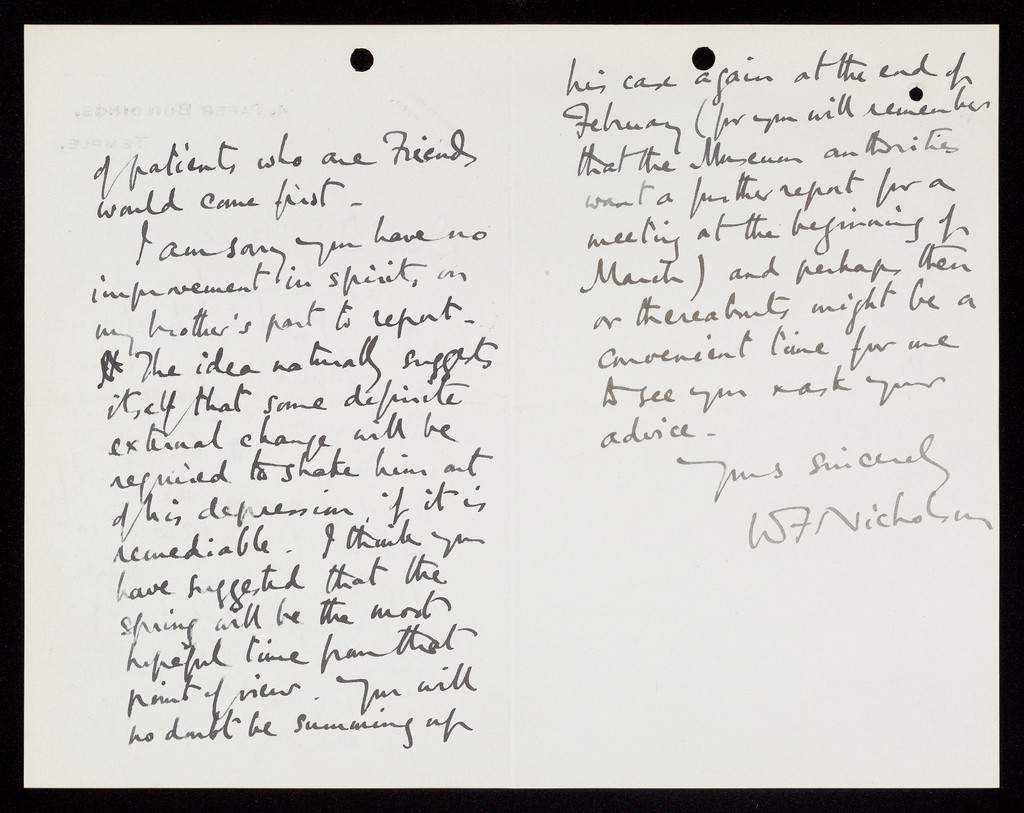 of patients who are Friends
would come first -
I am sorry you have no
improvement in spirits, on
my brother's part to report -
The idea naturally suggests
itself that some definite
external change will be
required to shake him out
of his depression, if it is
remediable. I think you
have suggested that the
spring will be the most
hopeful time from that
point of view. You will
no doubt be summing up
his case again at the end of
February (for you will remember
that the Museum authorities
want a further report for a
meeting at the beginning of
March) and perhaps then
or thereabouts might be a
convenient time for me
to see you & ask your
advice -
Yours sincerely
W F Nicholson
PAPER BUILDINGS,
TEMPLE.